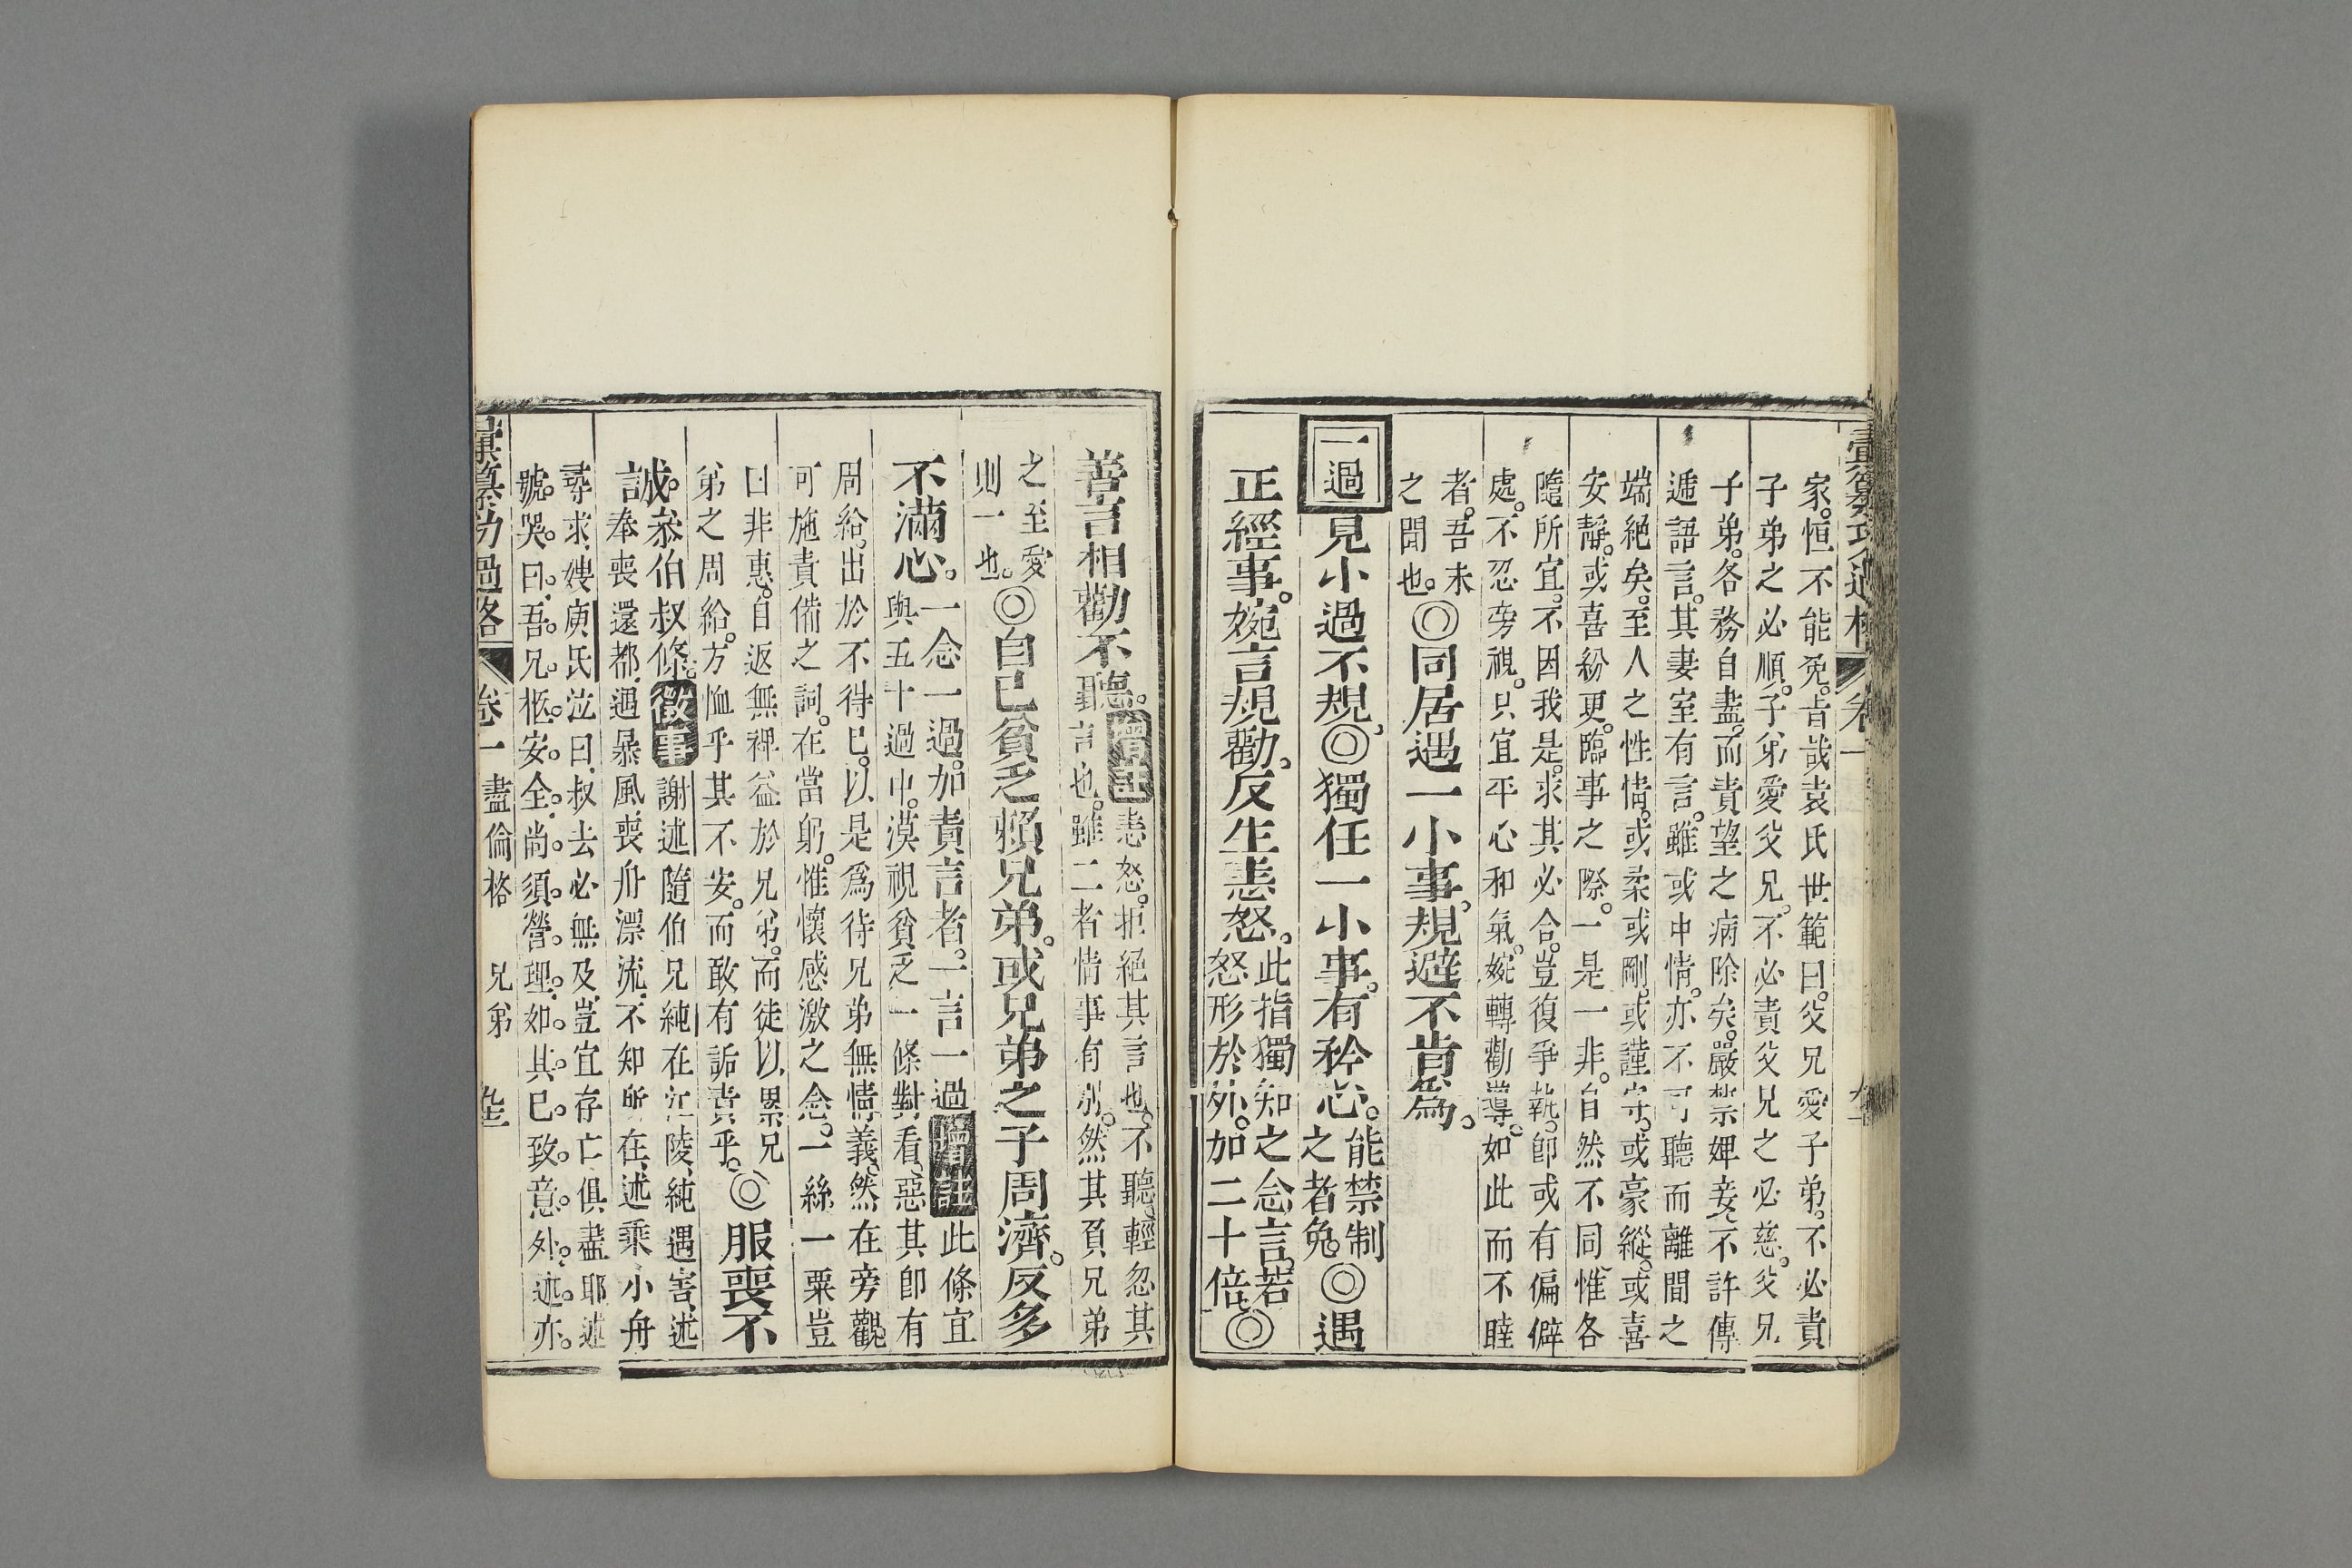 彙纂功過格 卷一
家。恒不能免。昔哉袁氏世範曰。父兄愛子弟。不必責
子弟之必順。子弟愛父兄。不必責父兄之必慈。父兄
子弟。各務自盡。而責望之病除矣。嚴禁婢妾。不許傳
遞語言。其妻室有言。雖或中情。亦不可聽而離間之
端絕矣。至人之性情。或柔或剛。或謹守。或豪縱。或喜
安靜。或喜紛更。臨事之際。一是一非。自然不同。惟各
隨所宜。不因我是。求其必合。豈復爭執。卽或有偏僻
處。不忍旁視。只宜平心和氣。婉轉勸導。如此而不睦
者。吾未
之聞也。◎同居遇一小事。規避不肯爲。
一過 見小過不規。◎獨任一小事。有矜心。能禁制
之者免。◎遇
正經事。婉言規勸。反生恚怒。此指獨知之念言。若
怒形於外。加二十倍。◎
善言相勸不聽。增註 恚怒。拒絕其言也。不聽。輕忽其
言也。雖二者情事有別。然其負兄弟
之至愛
則一也。◎自己貧乏賴兄弟。或兄弟之子周濟。反多
不滿心。一念一過。加責言者。一言一過 增註 此條宜
與五十過中。漠視貧乏一條對看。惡其卽有
周給。出於不得已。以是爲待兄弟無情義。然在旁觀
可施責備之詞。在當躬。惟懷感激之念。一絲一粟豈
曰非惠。自返無裨益於兄弟。而徒以累兄
弟之周給。方恤乎其不安。而敢有詬責乎。◎服喪不
誠。叅伯叔條。徵事 謝述隨伯兄純在江陵。純遇害。述
奉喪還都。遇暴風。喪舟漂流。不知所在。述乘小舟
尋求。嫂庾氏泣曰。叔去必無及。豈宜存亡俱盡耶。述
號哭曰。吾兄柩安全。尚須營理。如其已致意外。述亦。
彙纂功過格 卷一 盡倫格 兄弟